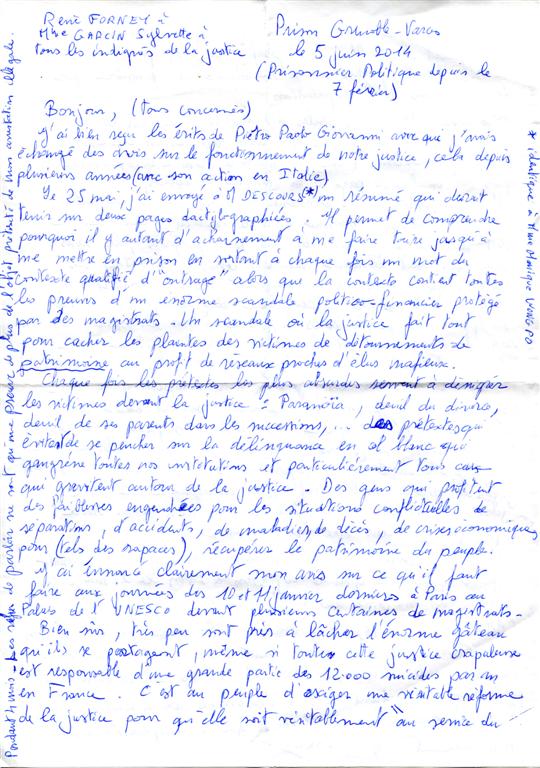 René FORNEY à
Mme GARCIN Sylvette à
tous les indignés de la justice
Prison Grenoble-Varces
le 5 juin 2014
(Prisonnier Politique depuis le
7 février)
Bonjour, (tous concernés)
J'ai bien reçu les écrits de Piétro Paolo Giovanni avec qui j'avais
échangé des avis sur le fonctionnement de notre justice, cela depuis
plusieurs années (avec son action en Italie)
Le 25 mai, j'ai envoyé à M DESCOURS (*) un résumé qui devrait
tenir sur deux pages dactylographiées. Il permet de comprendre
pourquoi il y autant d'acharnement à me faire taire jusqu'à
me mettre en prison en sortant à chaque fois un mot du
contexte qualifié d'"outrage" alors que le contexte contient toutes
les preuves d'un énorme scandale politico-financier protégé
par des magistrats. Un scandale où la justice fait tout
pour cacher les plaintes des victimes de détournements de
patrimoine au profit de réseaux proches d'élus mafieux.
Chaque fois les prétextes les plus absurdes servent à dénigrer
les victimes devant la justice : Paranoïa, deuil du divorce,
deuil de ses parents dans les successions, ... des prétextes qui
évitent de se pencher sur la délinquance en col blanc qui
gangrène toutes nos institutions et particulièrement tous ceux
qui gravitent autour de la justice. Des gens qui profitent
des faiblesses engendrées pour les situations conflictuelles de
séparations, d'accidents, de maladies, de décès, de crises économiques
pour (tels des rapaces), récupérer le patrimoine du peuple.
J'ai énoncé clairement mon avis sur ce qu'il faut
faire aux journées des 10 et 11 janvier derniers à Paris au
Palais de l'UNESCO devant plusieurs centaines de magistrats.
Bien sûr, très peu sont prêts à lâcher l'énorme gâteau
qu'ils se partagent, même si toute cette justice crapuleuse
est responsable d'une grande partie des 12000 suicides par an
en France. C'est au peuple d'exiger une véritable réforme
de la justice pour qu'elle soit véritablement "au service du
* identique à Mme Monique
Pendant 4 mois, les refus de parloirs ne sont qu'une preuve de plus de l'objet prétexté de mon arrestation illégale.